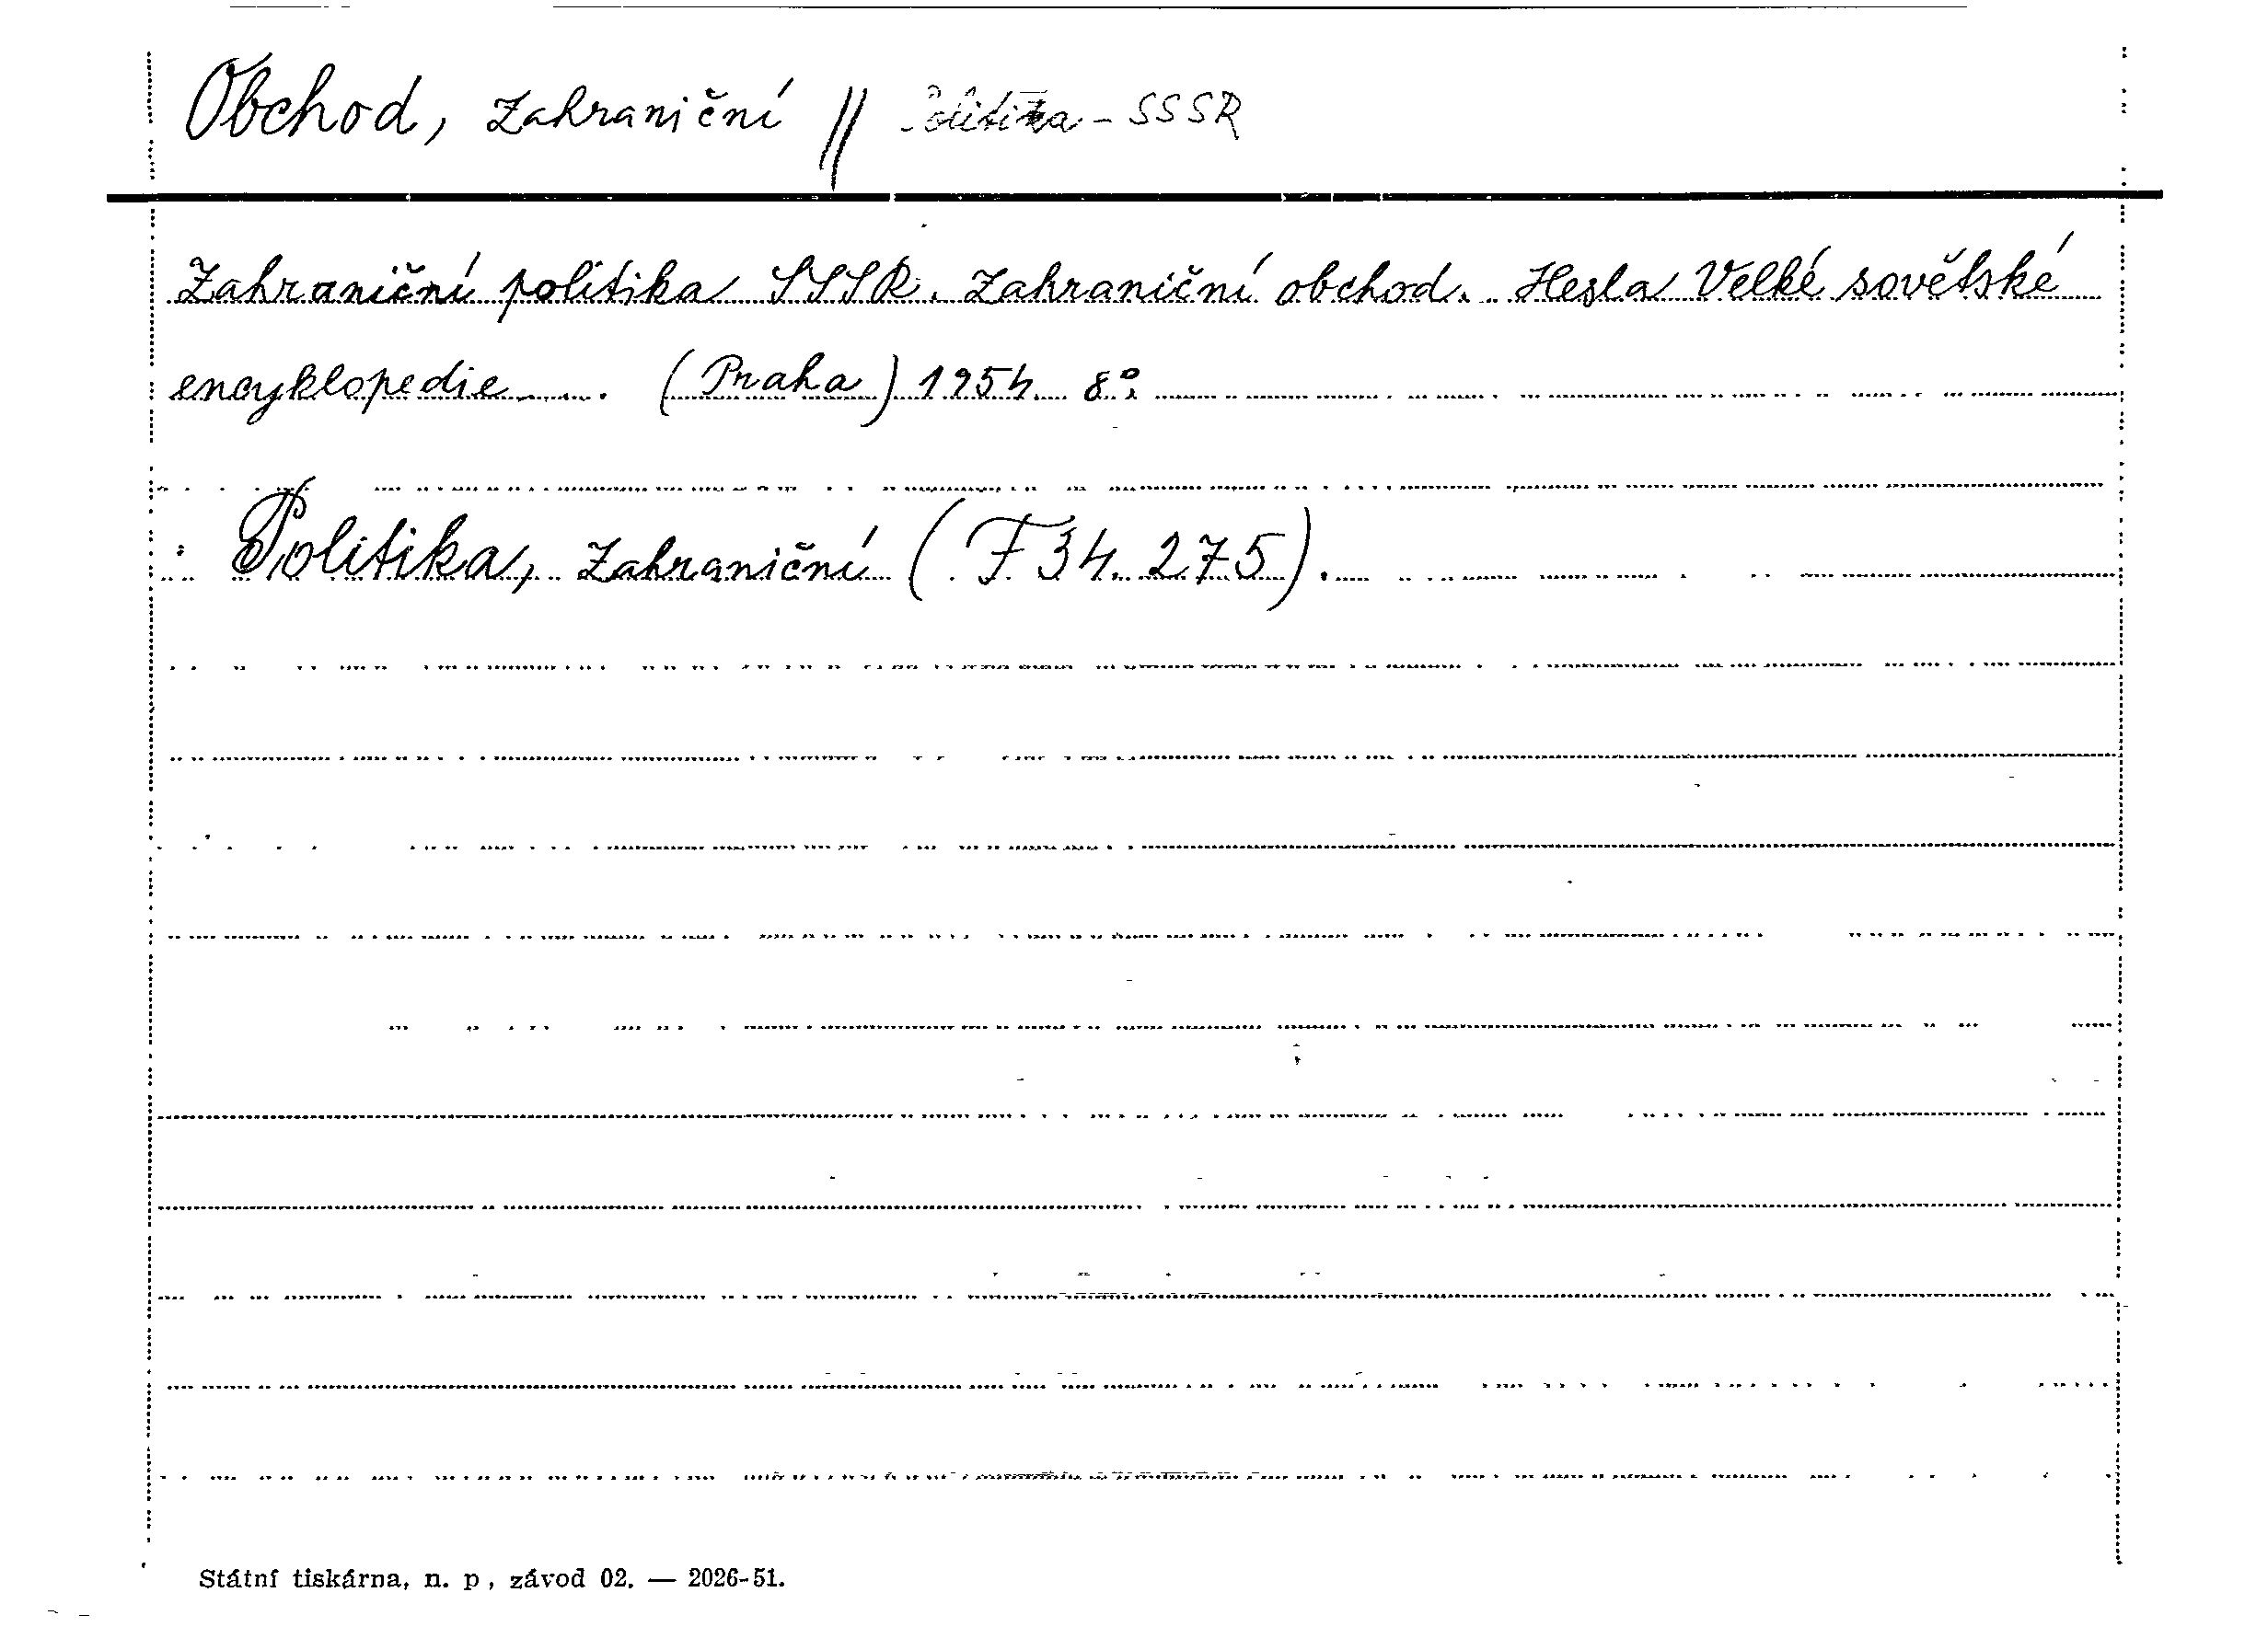 Obchod, zahraniční // Politika - SSSR
Zahraniční politika SSSR. Zahraniční obchod. Hesla Velké sovětské
encyklopedie..... (Praha) 1954. 8°.
: Politika, zahraniční (F 34.275).
Státní tiskárna, n. p, závod 02. — 2026-51.